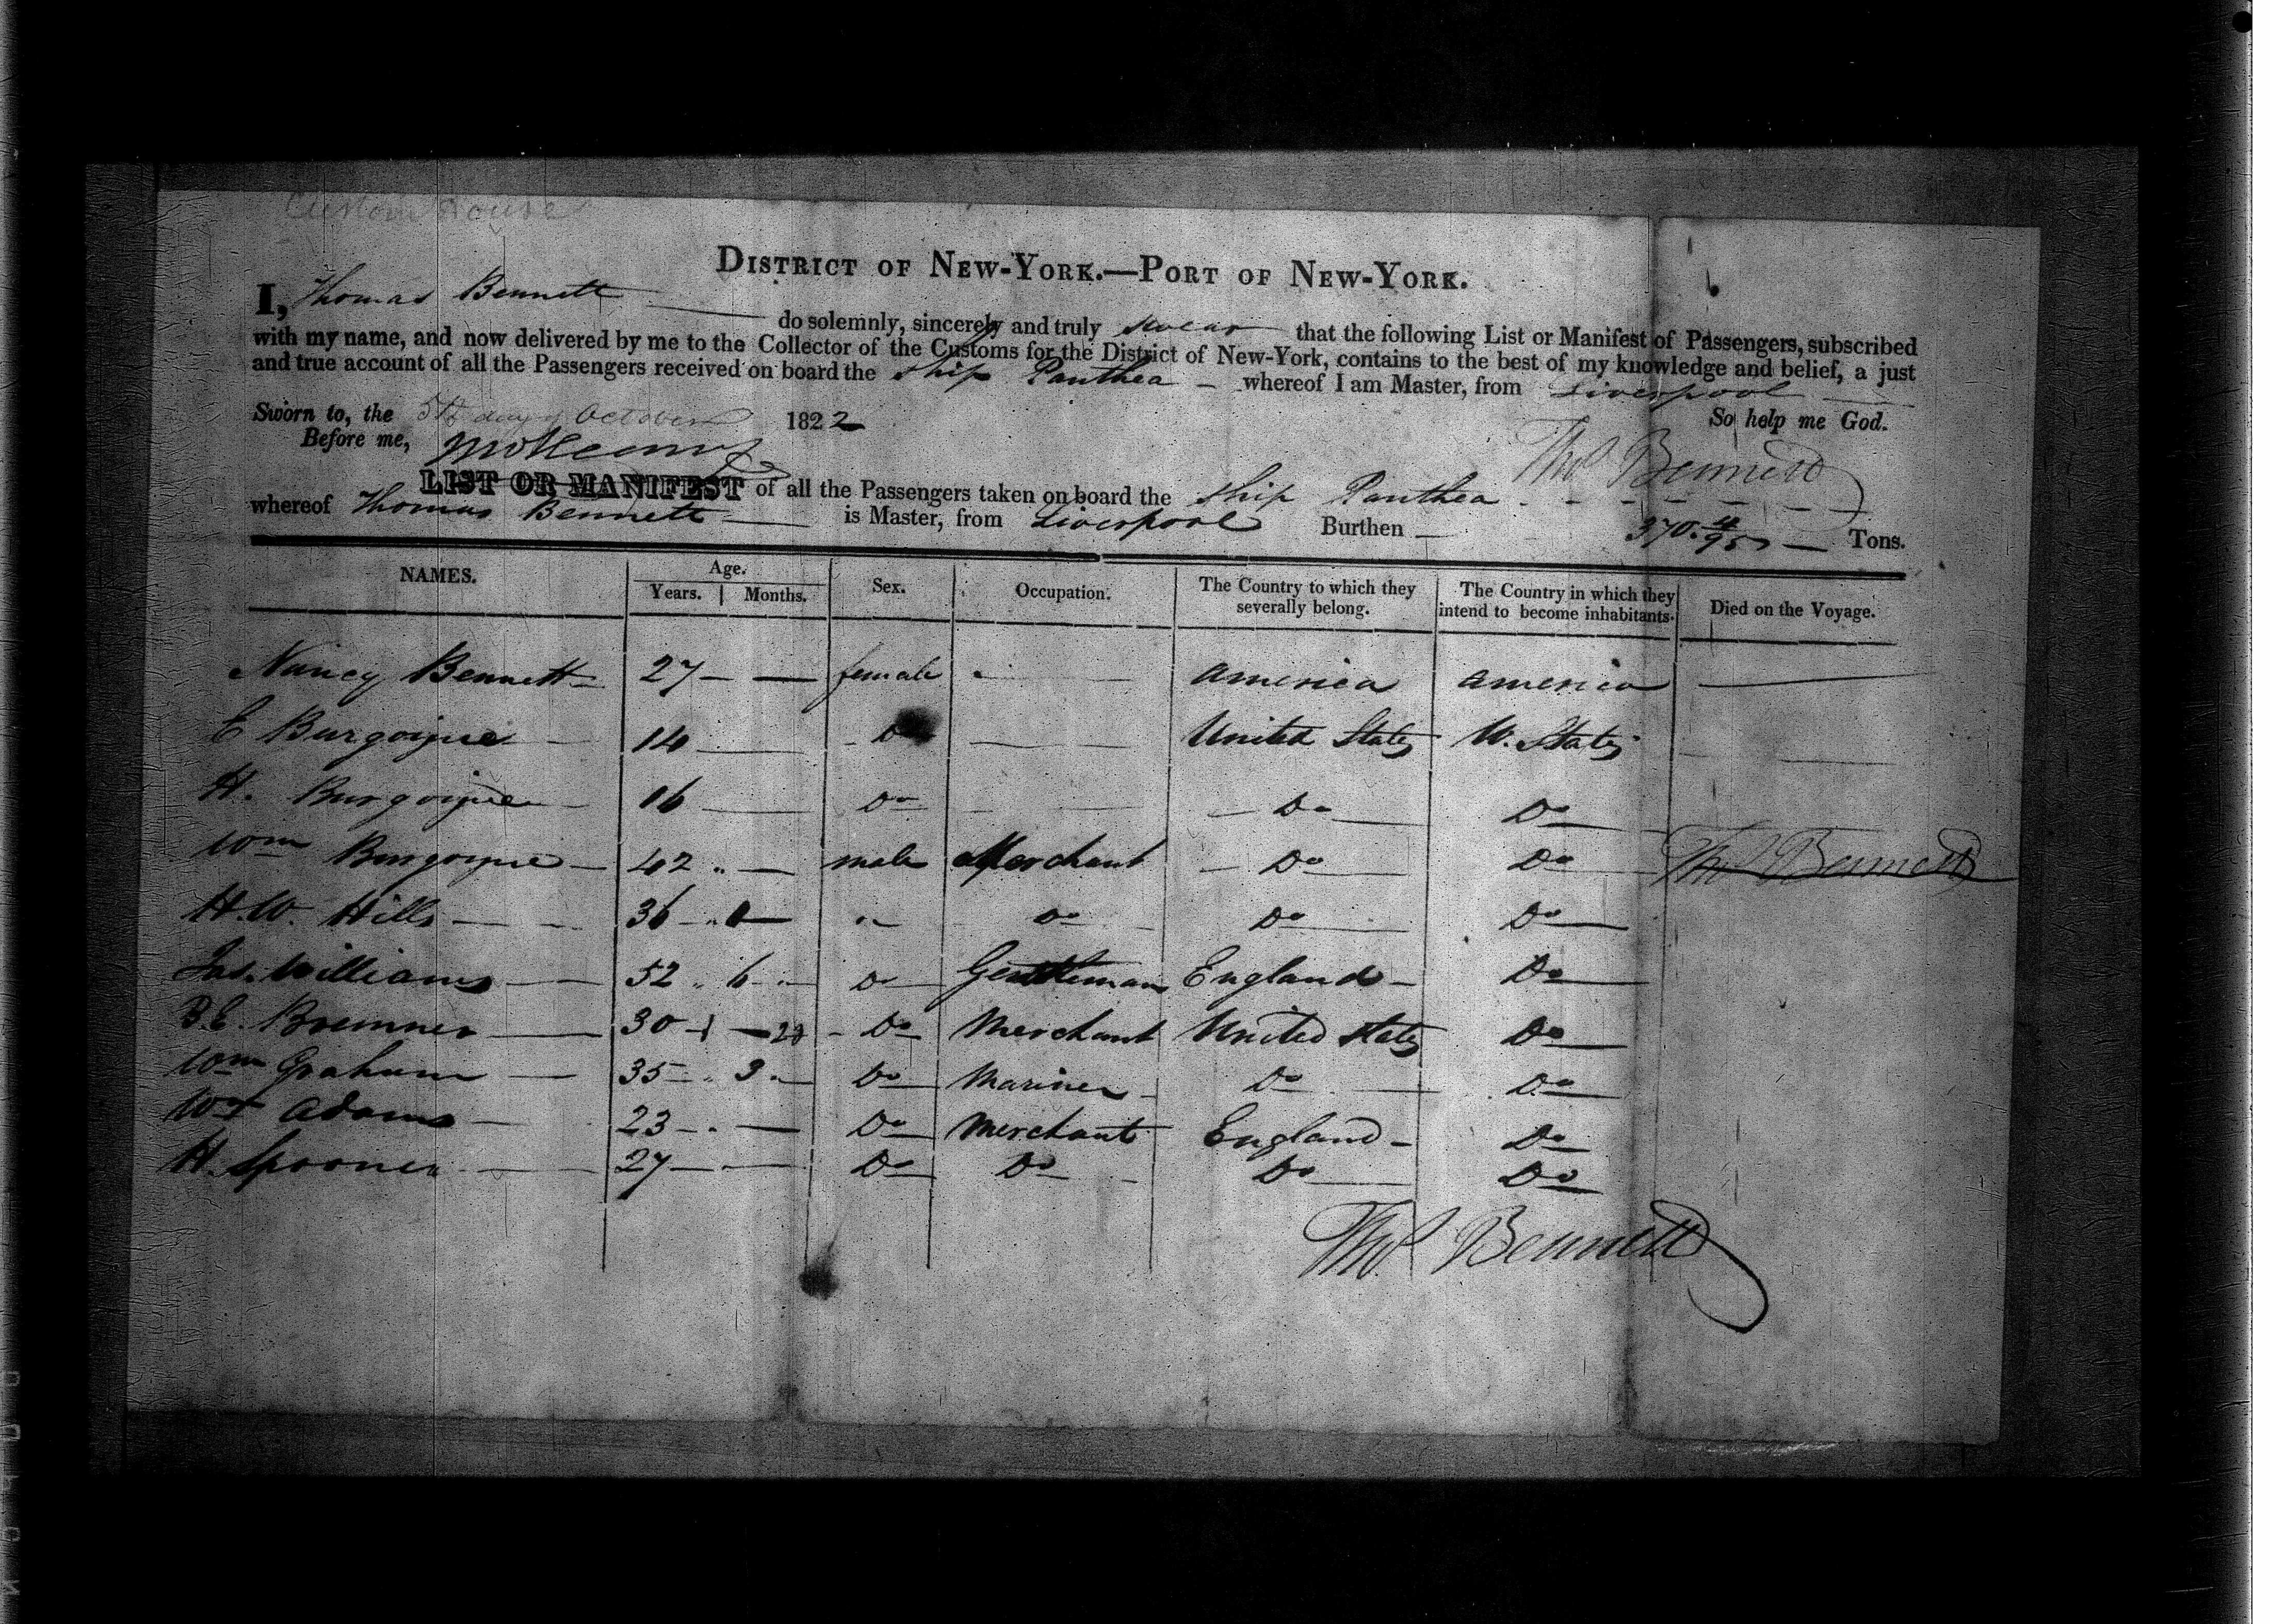 Custom House
DISTRICT OF NEW-YORK.—PORT OF NEW-YORK.
I, Thomas Bennett do solemnly, sincerely and truly swear that the following List or Manifest of Passengers, subscribed
with my name, and now delivered by me to the Collector of the Customs for the District of New-York, contains to the best of my knowledge and belief, a just
and true account of all the Passengers received on board the Ship Panthea — whereof I am Master, from Liverpool
Sworn to, the 5th day of October 1822 So help me God.
Before me,
Thos Bennett
LIST OR MANIFEST of all the Passengers taken on board the Ship Panthea
whereof Thomas Bennett is Master, from Liverpool Burthen — 370 4/95 — Tons.
NAMES. Age. Years. Months. Sex. Occupation. The Country to which they severally belong. The Country in which they intend to become inhabitants. Died on the Voyage.
Nancy Bennett 27 — — female — America America —
E Burgoyne 14 — Do — United States U. States
H. Burgoyne 16 — Do — Do Do
Wm Burgoyne 42 " — male Merchant Do Do Thos Bennett
H.W. Hills 36 — " Do Do Do
Jas. Williams 52 " 6 " Do Gentleman England Do
B.E. Bremner 30 — 20 Do Merchant United States Do
Wm Graham 35 " 3 Do Mariner Do Do
Wm Adams 23 — Do Merchant England Do
H. Spooner 27 — Do Do Do Do
Thos Bennett